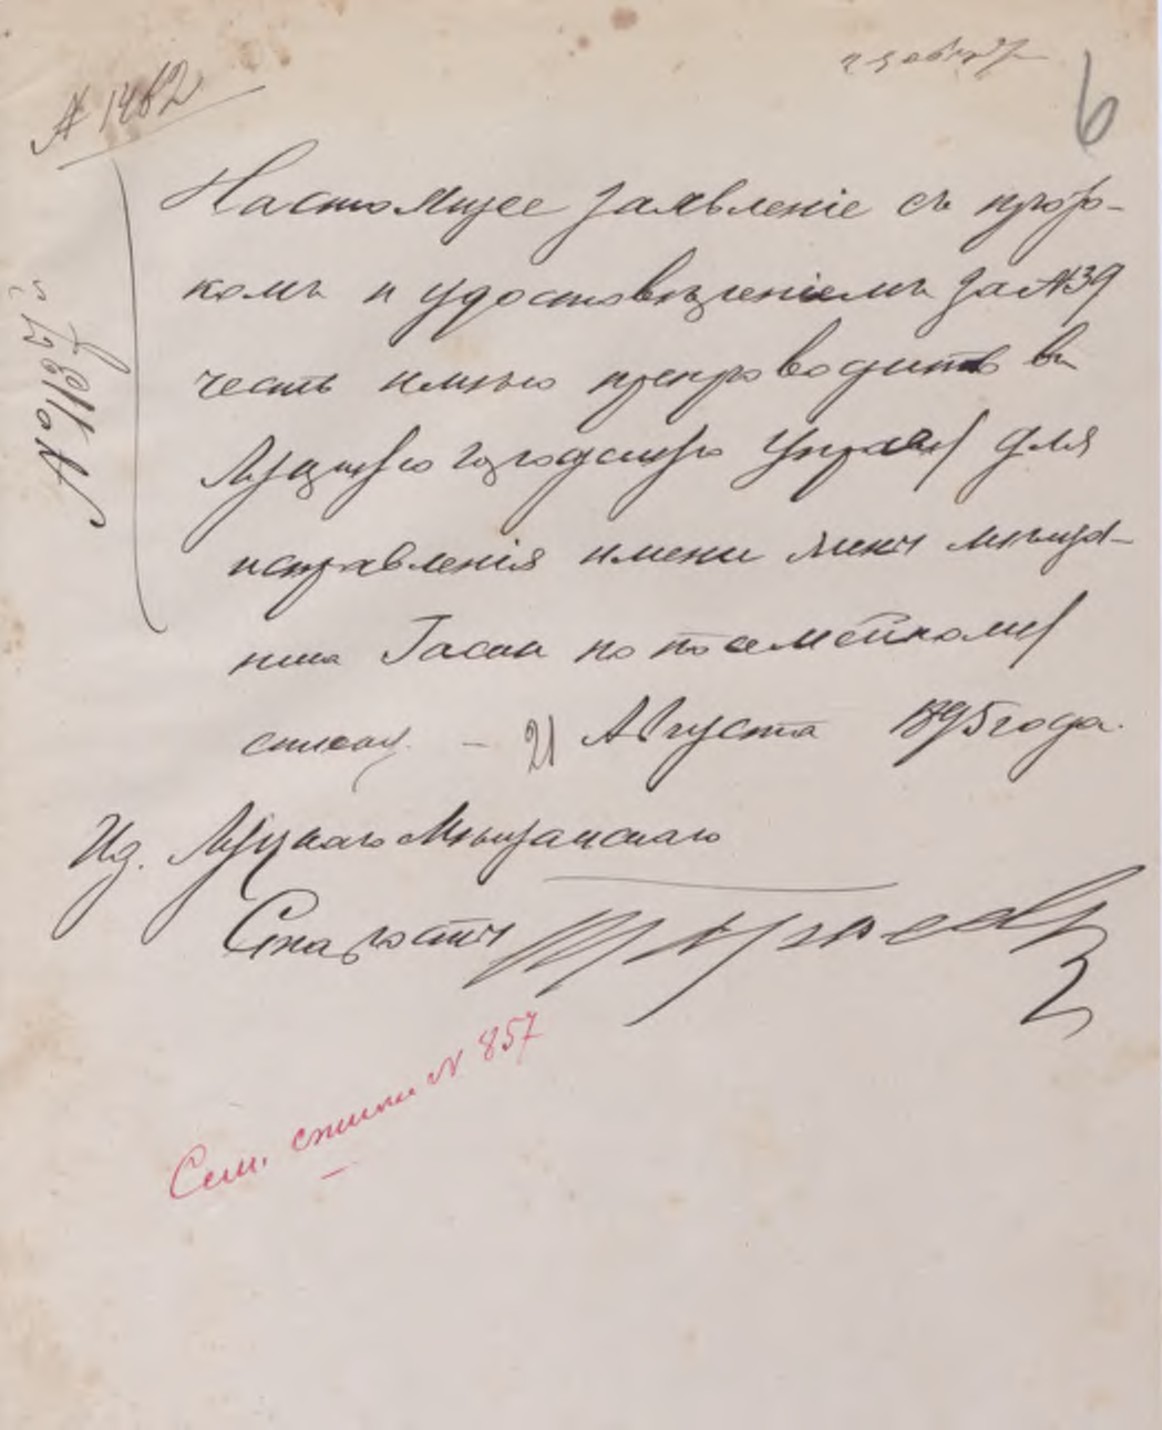 № 1482
6
Настоящее заявленіе съ
комъ и удостовѣреніемъ за № 39
честь имѣю препроводить въ
Луцкую городскую Управу для
исправленія имени мѣща-
нина по посемейному
списку. – 21 Августа 1895 года.
Луцкаго Мѣщанскаго
Старосты
Сем. списки № 857